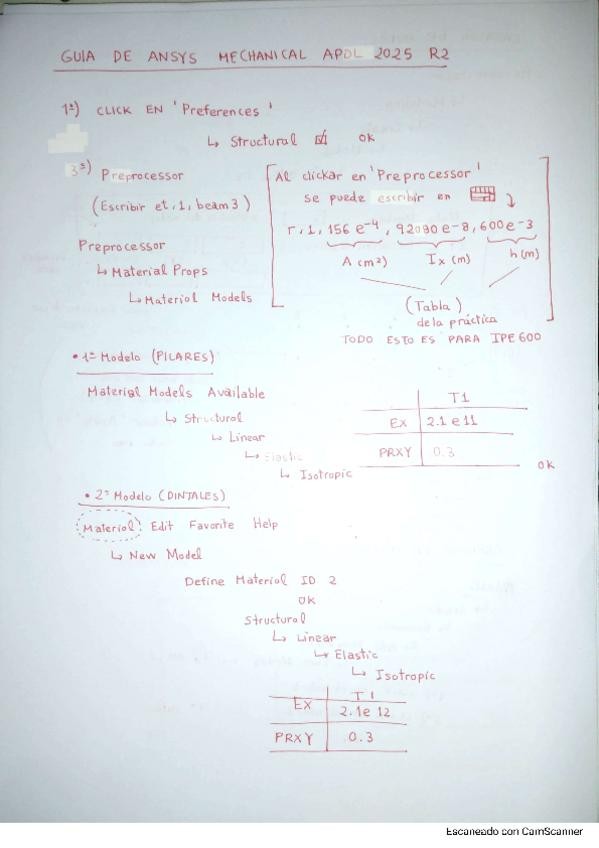 GUIA DE ANSYS MECHANICAL APDL 2025 R2
1º) CLICK EN 'Preferences'
↳ Structural ☑ OK
3º) Preprocessor
(Escribir et,1,beam3)
Preprocessor
↳ Material Props
↳ Material Models
Al clickar en 'Preprocessor'
se puede escribir en
r,1,156e-4,92080e-8,600e-3
A (m²) Ix (m) h (m)
(Tabla)
de la práctica
TODO ESTO ES PARA IPE 600
• 1º Modelo (PILARES)
Material Models Available
↳ Structural
↳ Linear
↳ Elastic
↳ Isotropic
T1
EX 2.1e11
PRXY 0.3
OK
• 2º Modelo (DINTALES)
Material Edit Favorite Help
↳ New Model
Define Material ID 2
OK
Structural
↳ Linear
↳ Elastic
↳ Isotropic
T1
EX 2.1e12
PRXY 0.3
Escaneado con CamScanner